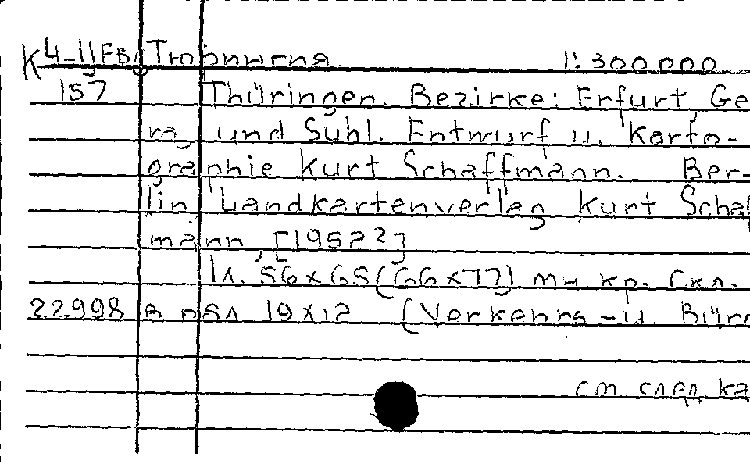 К 4-11 Тюрингия 1:300000
157 Thüringen. Bezirke: Erfurt, Ge
ra, und Suhl. Entwurf u. Karto-
graphie Kurt Schaffmann. Ber-
lin Landkartenverlag Kurt Schaf
mann, [1952?]
1 л. 56x65 (66x77) мн. кр. Скл.
22998 в обл 19x12 (Verkehrs-u. Büro
см след ка